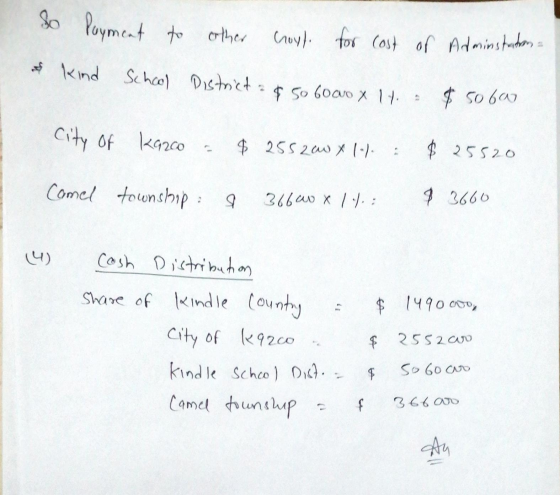 So Payment to other Govt. for cost of Adminstration =
* Kind School District = $ 5060000 x 1% = $ 50600
City of Kazco = $ 2552000 x 1% : $ 25520
Camel township : $ 366000 x 1% : $ 3660
(4) Cash Distribution
Share of Kindle Country = $ 1490000,
City of Kazco = $ 2552000
Kindle School Dist. = $ 5060000
Camel township = $ 366000